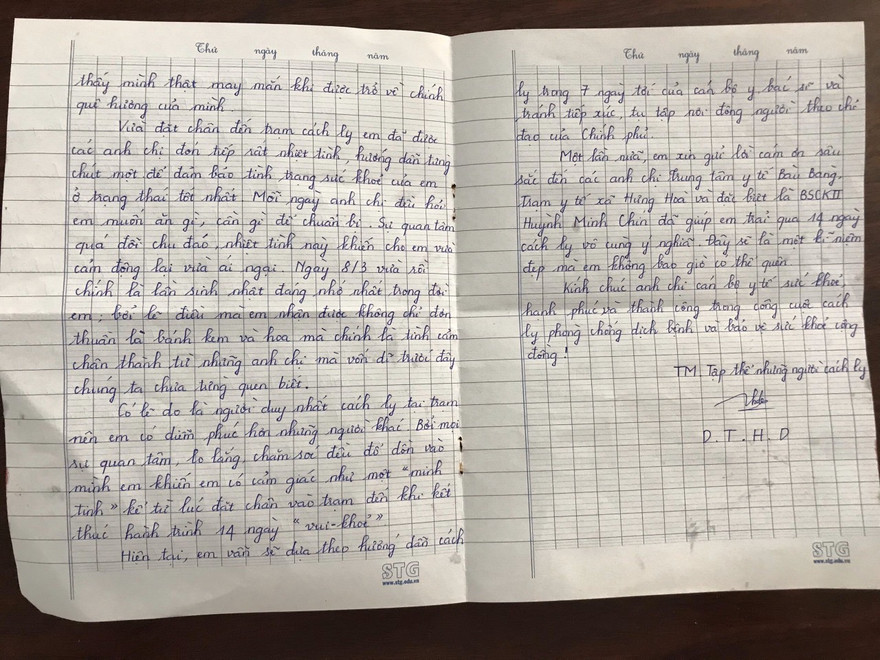 Thứ ngày tháng năm
thấy mình thật may mắn khi được trở về chính
quê hương của mình.
Vừa đặt chân đến trạm cách ly em đã được
các anh chị đón tiếp rất nhiệt tình, hướng dẫn từng
chút một để đảm bảo tình trạng sức khoẻ của em
ở trạng thái tốt nhất. Mỗi ngày anh chị đều hỏi
em muốn ăn gì, cần gì để chuẩn bị. Sự quan tâm
quá đỗi chu đáo, nhiệt tình này khiến cho em vừa
cảm động lại vừa ái ngại. Ngày 8/3 vừa rồi
chính là lần sinh nhật đáng nhớ nhất trong đời
em; bởi lẽ điều mà em nhận được không chỉ đơn
thuần là bánh kem và hoa mà chính là tình cảm
chân thành từ những anh chị mà vốn dĩ trước đây
chúng ta chưa từng quen biết.
Có lẽ do là người duy nhất cách ly tại trạm
nên em có diễm phúc hơn những người khác. Bởi mọi
sự quan tâm, lo lắng, chăm sóc đều đổ dồn vào
mình em khiến em có cảm giác như một "minh
tinh" kể từ lúc đặt chân vào trạm đến khi kết
thúc hành trình 14 ngày "vui-khoẻ"
Hiện tại, em vẫn sẽ dựa theo hướng dẫn cách
STG
www.stg.edu.vn
Thứ ngày tháng năm
ly trong 7 ngày tới của cán bộ y, bác sĩ và
tránh tiếp xúc, tụ tập nơi đông người theo chỉ
đạo của Chính phủ.
Một lần nữa, em xin gửi lời cảm ơn sâu
sắc đến các anh chị Trung tâm y tế Bàu Bàng,
Trạm y tế xã Hưng Hoà và đặc biệt là BSCKII
Huỳnh Minh Chín đã giúp em trải qua 14 ngày
cách ly vô cùng ý nghĩa. Đây sẽ là một kỉ niệm
đẹp mà em không bao giờ có thể quên.
Kính chúc anh chị cán bộ y tế sức khoẻ,
hạnh phúc và thành công trong công cuộc cách
ly phòng chống dịch bệnh và bảo vệ sức khoẻ cộng
đồng!
TM Tập thể những người cách ly
D.T.H.D
STG
www.stg.edu.vn